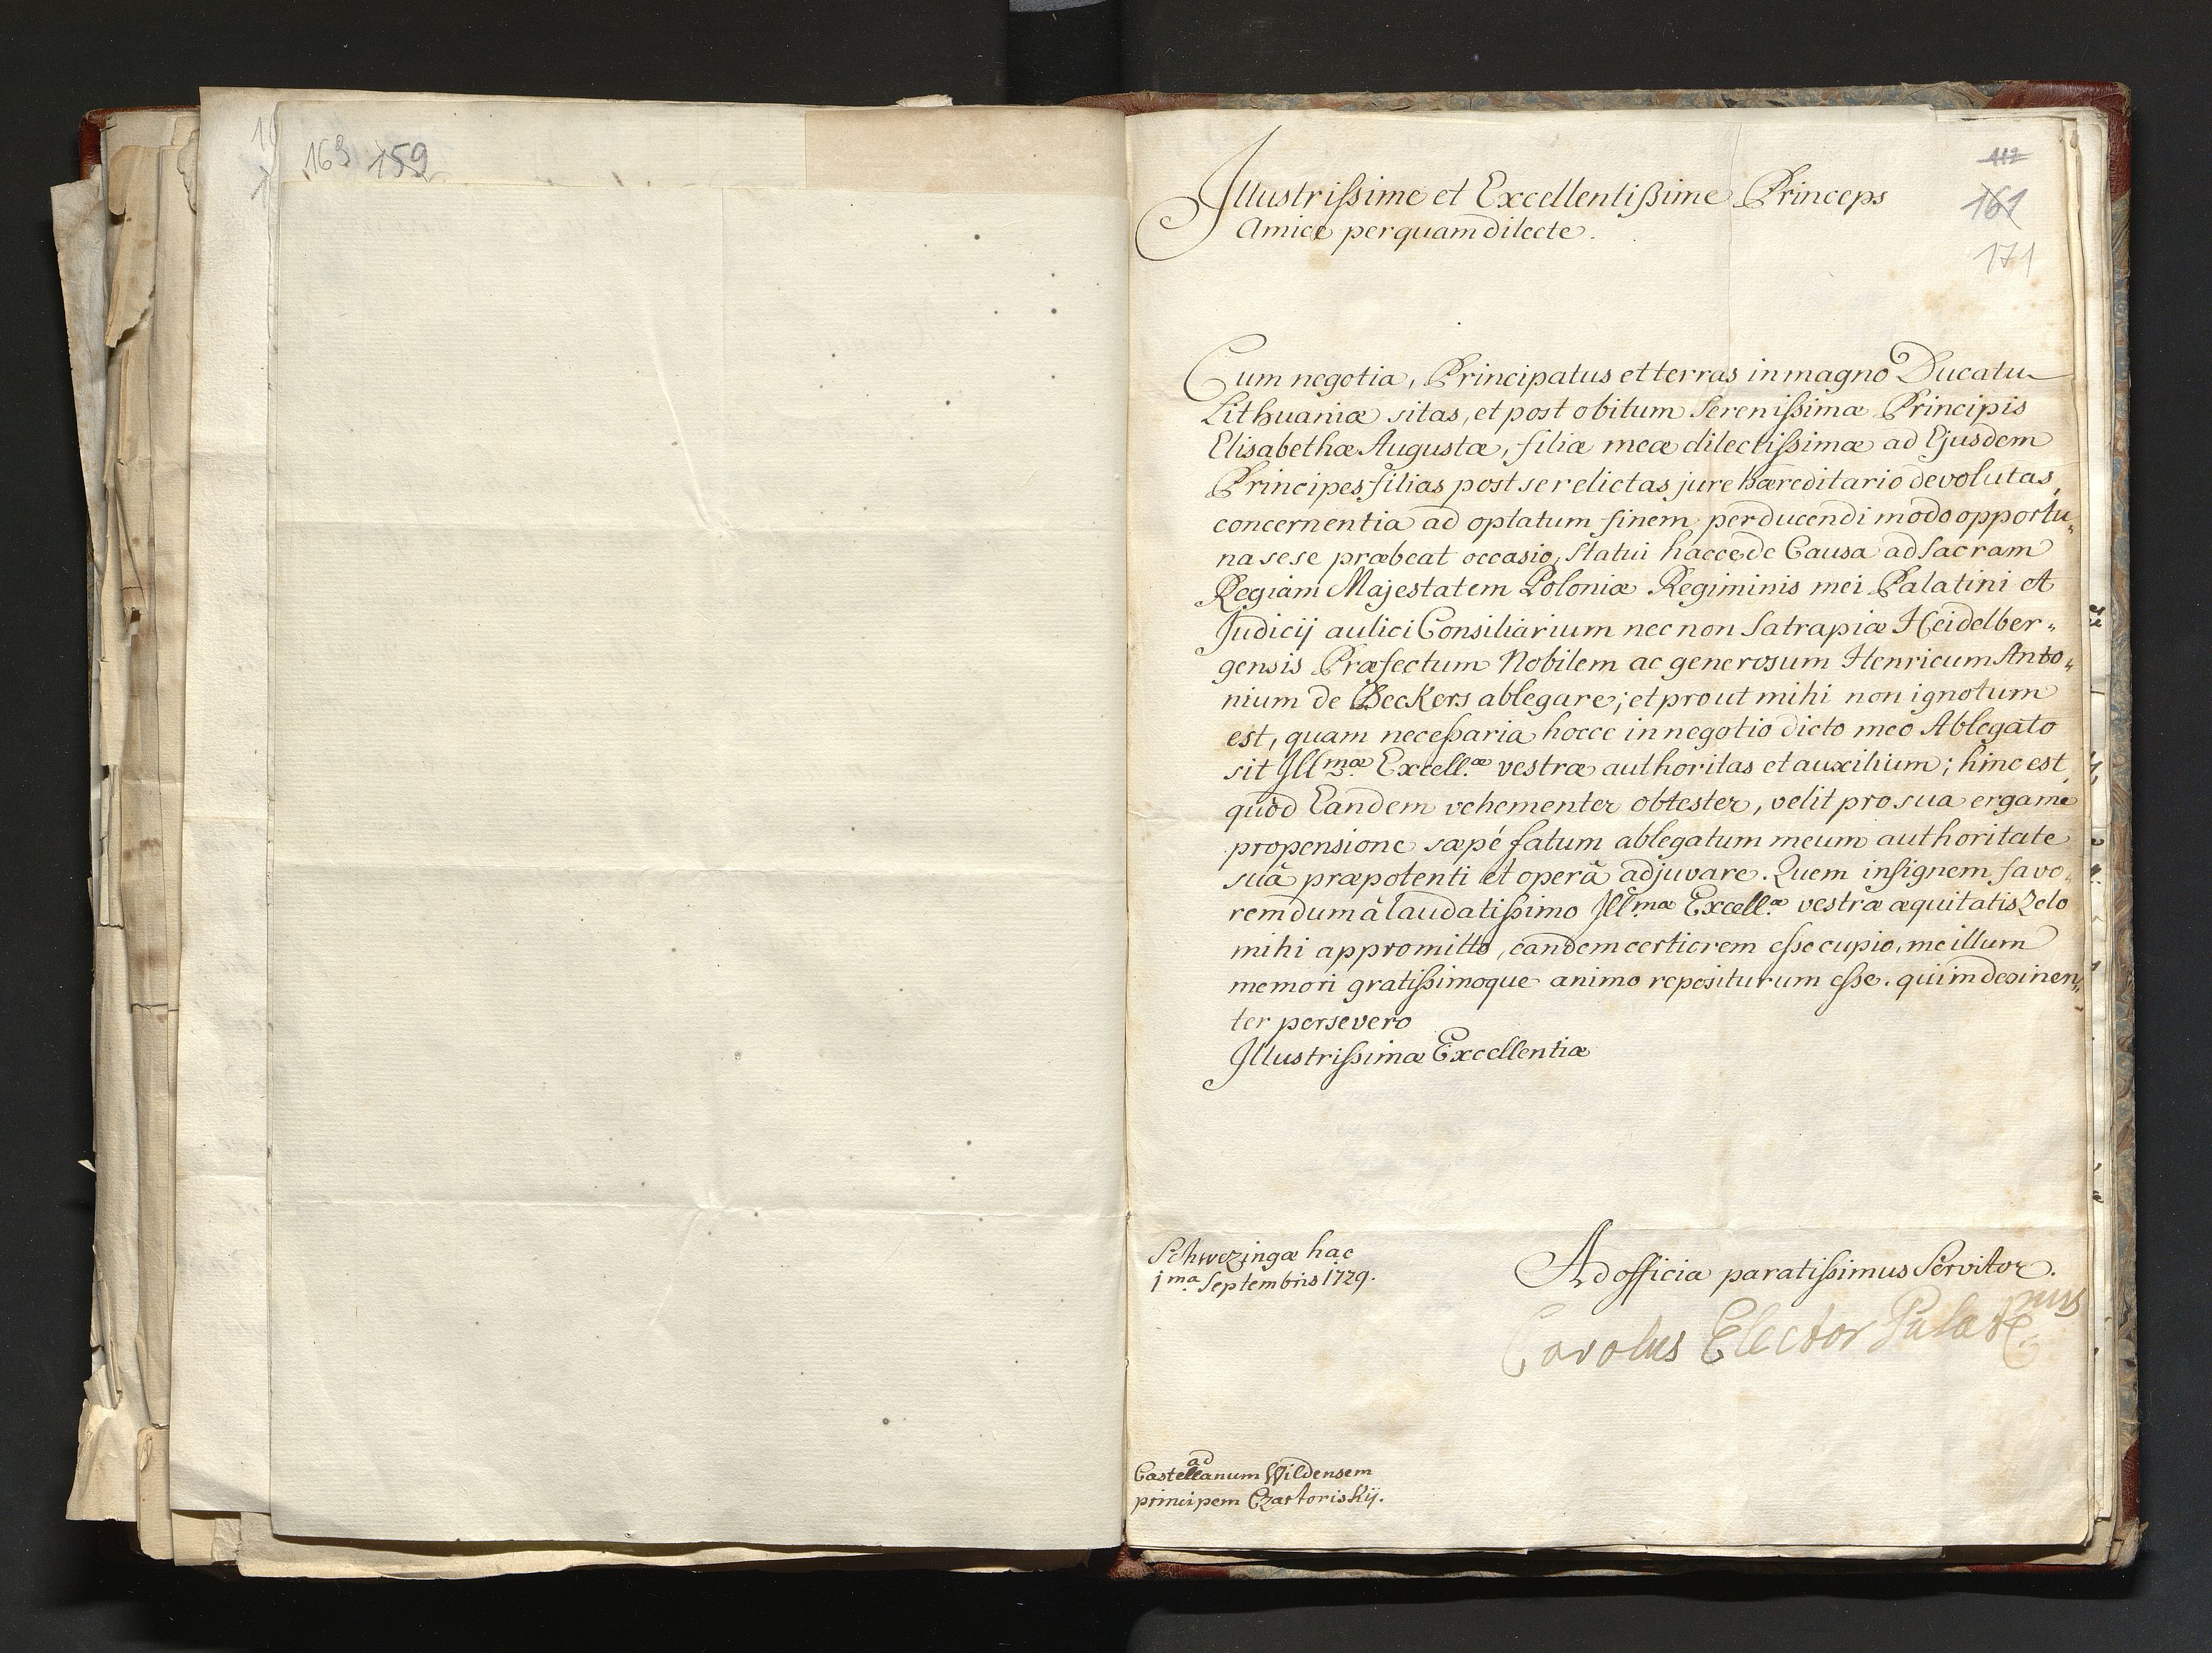 163 159
117
161
171
Illustrissime et Excellentissime Princeps
Amice perquam dilecte.
Cum negotia, Principatus et terras in magno Ducatu
Lithuaniæ sitas, et post obitum Serenissimæ Principis
Elisabethæ Augustæ, filiæ meæ dilectissimæ ad Ejusdem
Principes filias post se relictas jure hæreditario devolutas,
concernentia ad optatum finem perducendi modo opportu„
na sese præbeat occasio, statui hacce de Causa ad Sacram
Regiam Majestatem Poloniæ Regiminis mei Palatini et
Judicij aulici Consiliarium nec non Satrapiæ Heidelber„
gensis Præfectum Nobilem ac generosum Henricum Anto„
nium de Beckers ablegare; et prout mihi non ignotum
est, quam necessaria hocce in negotio dicto meo Ablegato
sit Jll.mæ Excell.æ vestræ authoritas et auxilium; hinc est,
quòd Eandem vehementer obtester, velit pro sua erga me
propensione sæpé fatum ablegatum meum authoritate
suâ præpotenti et operâ adjuvare. Quem insignem favo„
rem dum à laudatissimo Jll.mæ Excell.æ vestræ æquitatis Zelo
mihi appromitto, eandem certiorem esse cupio, me illum
memori gratissimoque animo repositurum esse. qui indesinen„
ter persevero
Illustrissimæ Excellentiæ
Schwezingæ hac
1ma Septembris 1729.
Ad officia paratissimus Servitor.
Carolus Elector Palatinus
ad
Castellanum Wildensem
principem Czartoriskij.